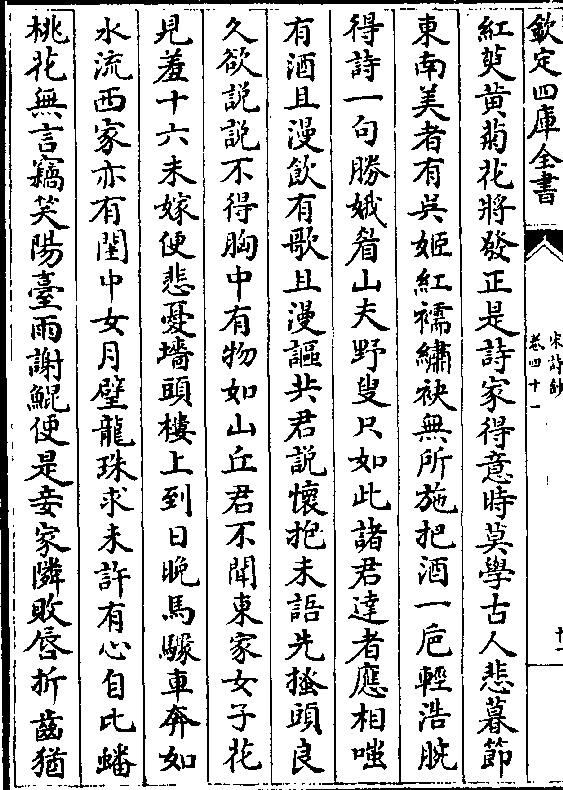 欽定四庫全書
宋詩鈔
卷四十一
十一
紅萸黃菊花將發正是詩家得意時莫學古人悲暮節
東南美者有吳姬紅襦繡袂無所施把酒一巵輕浩脘
得詩一句勝娥眉山夫野叟只如此諸君達者應相嗤
有酒且漫飲有歌且漫謳共君說懷抱未語先搔頭良
久欲説説不得胸中有物如山丘君不聞東家女子花
見羞十六未嫁便悲憂墻頭樓上到日晚馬驟車奔如
水流西家亦有閨中女月璧龍珠求未許有心自比蟠
桃花無言竊笑陽臺雨謝鯤便是妾家隣敗唇折齒猶